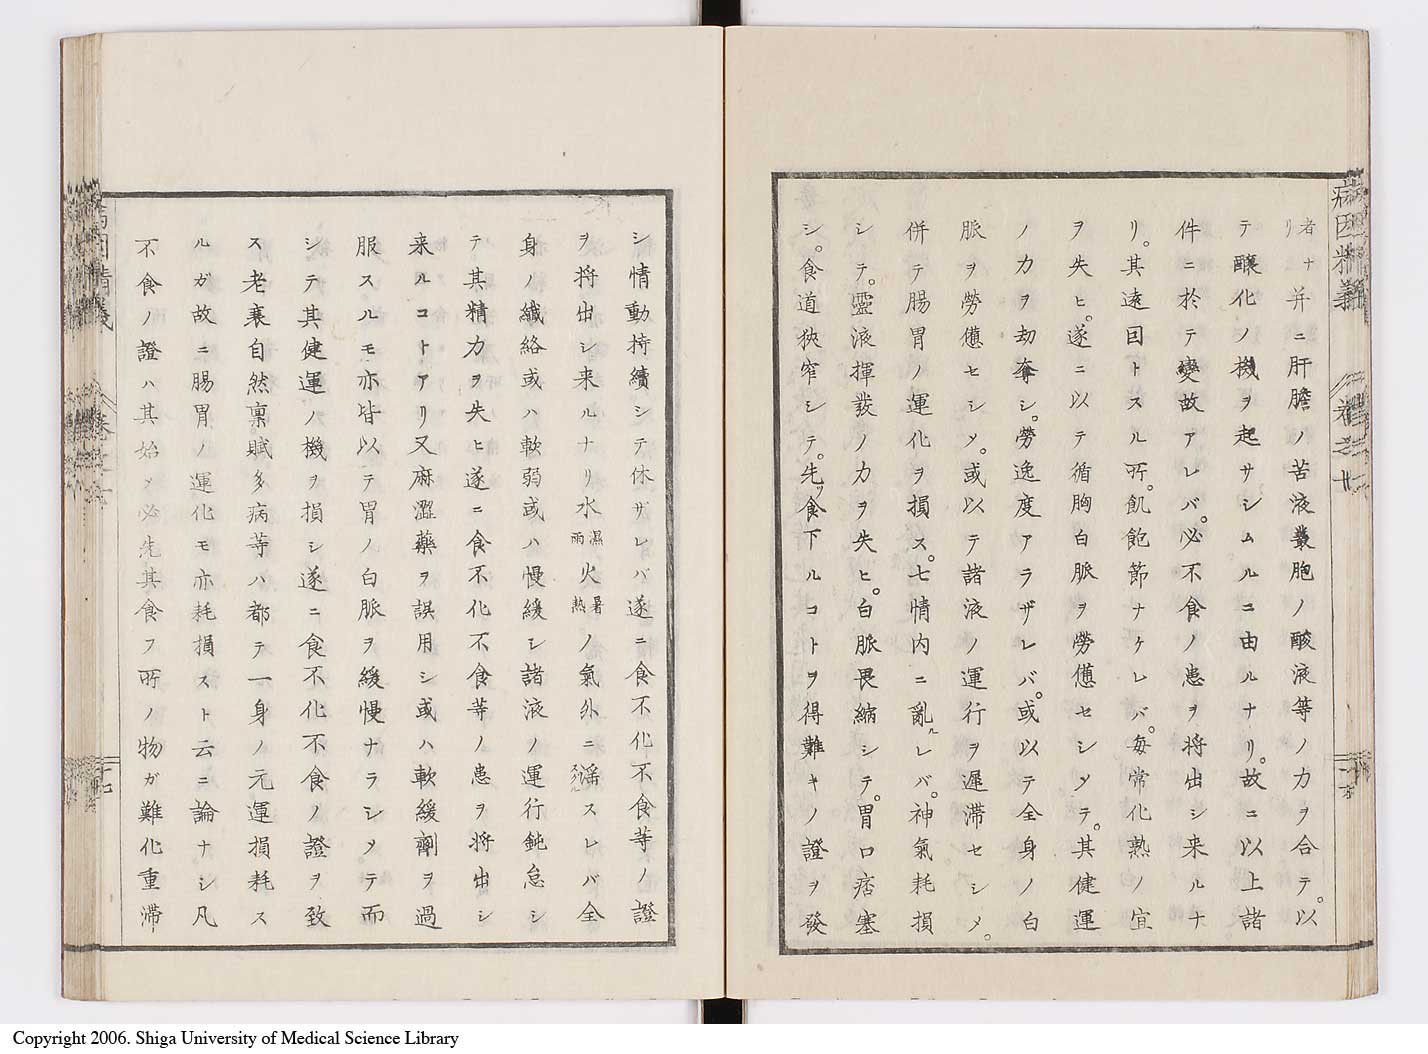 病因精義
巻之十
者ナリ并ニ肝膽ノ苦液叢胞ノ酸液等ノ力ヲ合テ。以
テ釀化ノ機ヲ起サシムルニ由ルナリ。故ニ以上諸
件ニ於テ變故アレバ。必不食ノ患ヲ将出シ来ルナ
リ。其遠因トスル所。飢飽節ナケレバ。毎常化熟ノ宜
ヲ失ヒ。遂ニ以テ循胸白脈ヲ勞憊セシメテ。其健運
ノ力ヲ劫奪シ。勞逸度アラザレバ。或以テ全身ノ白
脈ヲ勞憊セシメ。或以テ諸液ノ運行ヲ遲滞セシメ。
併テ腸胃ノ運化ヲ損ス。七情内ニ亂ルレバ。神氣耗損
シテ。靈液揮發ノ力ヲ失ヒ。白脈畏縮シテ。胃口痞塞
シ。食道狹窄シテ。先ツ食下ルコトヲ得難キノ證ヲ發
シ情動持續シテ休ザレバ遂ニ食不化不食等ノ證
ヲ将出シ来ルナリ水濕雨火暑熱ノ氣外ニ滛スレバ全
身ノ纖絡或ハ軟弱或ハ慢緩シ諸液ノ運行鈍怠シ
テ其精力ヲ失ヒ遂ニ食不化不食等ノ患ヲ将出シ
来ルコトアリ又麻澀藥ヲ誤用シ或ハ軟緩劑ヲ過
服スルモ亦皆以テ胃ノ白脈ヲ緩慢ナラシメテ而
シテ其健運ノ機ヲ損シ遂ニ食不化不食ノ證ヲ致
ス老衰自然稟賦多病等ハ都テ一身ノ元運損耗ス
ルガ故ニ腸胃ノ運化モ亦耗損スト云ニ論ナシ凡
不食ノ證ハ其始メ必先其食フ所ノ物ガ難化重滞
病因精義
巻之十
十七